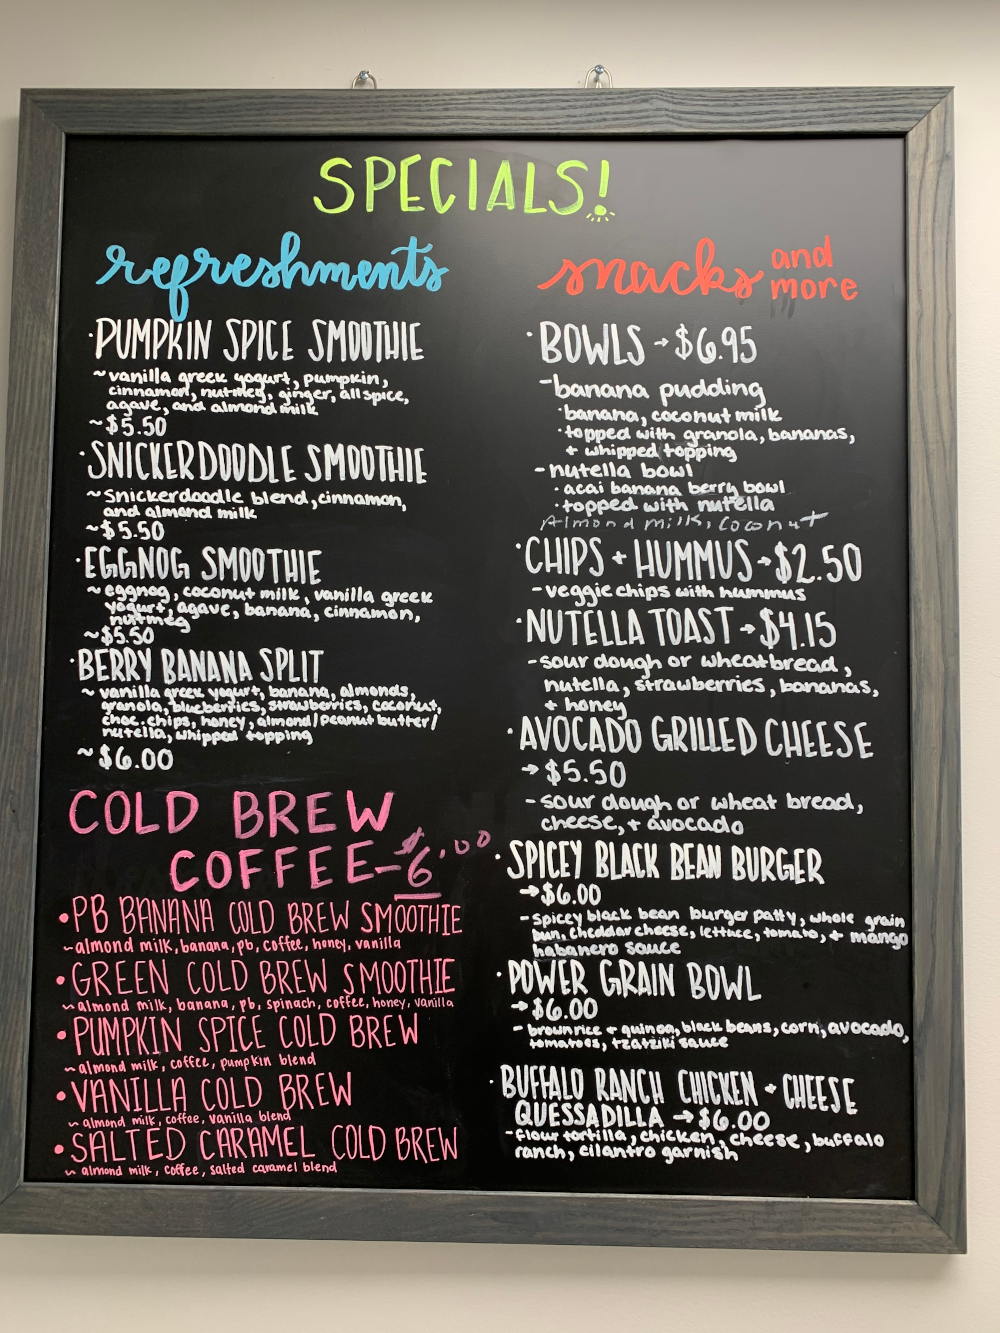 SPECIALS!
refreshments
·PUMPKIN SPICE SMOOTHIE
~vanilla greek yogurt, pumpkin,
cinnamon, nutmeg, ginger, allspice,
agave, and almond milk
~$5.50
·SNICKERDOODLE SMOOTHIE
~Snickerdoodle blend, cinnamon,
and almond milk
~$5.50
·EGGNOG SMOOTHIE
~eggnog, coconut milk, vanilla greek
yogurt, agave, banana, cinnamon,
nutmeg
~$5.50
·BERRY BANANA SPLIT
~vanilla greek yogurt, banana, almonds,
granola, blueberries, strawberries, coconut,
choc. chips, honey, almond/peanut butter/
nutella, whipped topping
~$6.00
COLD BREW
COFFEE-$6.00
•PB BANANA COLD BREW SMOOTHIE
~almond milk, banana, pb, coffee, honey, vanilla
•GREEN COLD BREW SMOOTHIE
~almond milk, banana, pb, spinach, coffee, honey, vanilla
•PUMPKIN SPICE COLD BREW
~almond milk, coffee, pumpkin blend
•VANILLA COLD BREW
~almond milk, coffee, vanilla blend
•SALTED CARAMEL COLD BREW
~almond milk, coffee, salted caramel blend
snacks and
more
·BOWLS→$6.95
-banana pudding
·banana, coconut milk
·topped with granola, bananas,
+ whipped topping
-nutella bowl
·acai banana berry bowl
·topped with nutella
Almond milk, Coconut
·CHIPS + HUMMUS→$2.50
-veggie chips with hummus
·NUTELLA TOAST→$4.15
-sour dough or wheat bread,
nutella, strawberries, bananas,
+ honey
·AVOCADO GRILLED CHEESE
→$5.50
-sour dough or wheat bread,
cheese, + avocado
·SPICEY BLACK BEAN BURGER
→$6.00
-spicey black bean burger patty, whole grain
bun, cheddar cheese, lettuce, tomato, + mango
habanero sauce
·POWER GRAIN BOWL
→$6.00
-brown rice + quinoa, black beans, corn, avocado,
tomatoes, tzatziki sauce
·BUFFALO RANCH CHICKEN + CHEESE
QUESSADILLA→$6.00
-flour tortilla, chicken, cheese, buffalo
ranch, cilantro garnish